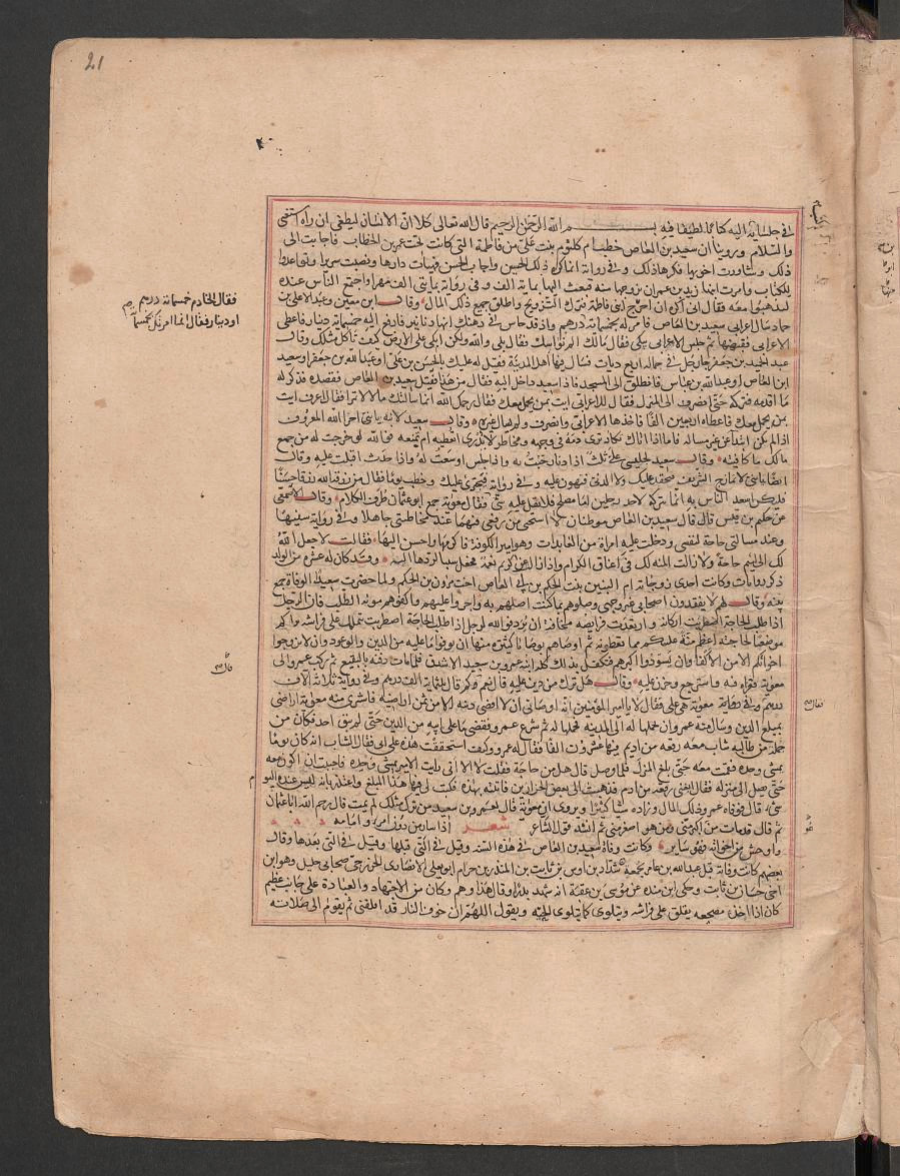 21
في جلسائه اليه كتابا لطيفا فيه بسم الله الرحمن الرحيم قال الله تعالى كلا ان الانسان ليطغى ان رآه استغنى
والسلام وروينا ان سعيد بن العاص خطب ام كلثوم بنت علي من فاطمة التي كانت تحت عمر بن الخطاب فاجابت الى
ذلك وشاورت اخويها فكرها ذلك وفي رواية انما كره ذلك الحسين واجاب الحسن فهيأت دارها ونصبت سريرا وتواعدوا
للكتاب وامرت ابنها زيد بن عمر ان يزوجها منه فبعث اليها بماية الف وفي رواية بمايتي الف مهرا واجتمع الناس عنده
ليذهبوا معه فقال اني اكره ان احرج ابني فاطمة فترك التزويج واطلق جميع ذلك المال وقال ابن معين وعبد الاعلى بن
حماد سال اعرابي سعيد بن العاص فامر له بخمسمائة درهم واذ قد جاس في ذهنك انها دنانير فادفع اليه خمسمائة دينار فاعطى
الاعرابي فقبضها ثم جلس الاعرابي يبكي فقال مالك الم تقبض نوالك فقال بلى والله ولكن ابكي على الارض كيف تأكل مثلك وقال
عبد الحميد بن جعفر جا رجل في حمالة اربع ديات فسال فيها اهل المدينة فقيل له عليك بالحسن بن علي او عبد الله بن جعفر او سعيد
ابن العاص او عبد الله بن عباس فانطلق الى المسجد فاذا سعيد داخل اليه فقال من هذا فقيل سعيد بن العاص فقصده فذكر له
ما اقدمه فتركه حتى انصرف الى المنزل فقال للاعرابي ايت بمن يحمل معك فقال رحمك الله انما سالتك مالا لا تمرا فقال اعرف ايت
بمن يحمل معك فاعطاه اربعين الفا فاخذها الاعرابي وانصرف ولم يسال غيره وقال سعيد لابنه يا بني اخزى الله المعروف
اذا لم يكن ابتدا عن غير مساله فاما اذا اتاك تكاد ترى دمه في وجهه ومخاطرا لا يدري اتعطيه ام تمنعه فوالله لو خرجت له من جميع
مالك ما كافيته وقال سعيد لجليسي علي ثلث اذا دنا رحبت به واذا جلس اوسعت له واذا حدث اقبلت عليه وقال
ايضا يا بني لا تمازح الشريف فيحقد عليك ولا الدني فتهون عليه وفي رواية فيجتري عليك وخطب يوما فقال من رزقه الله رزقا حسنا
فليكن اسعد الناس به انما يتركه لاحد رجلين اما مصلح فلا يقل عليه شي فقال معوية جمع ابو عثمان طرف الكلام وقال الاصمعي
عن حكيم بن قيس قال قال سعيد بن العاص موطنان لا استحي من رفقي فيهما عند مخاطبتي جاهلا وفي رواية سفيها
وعند مسالتي حاجة لنفسي ودخلت عليه امراة من العابدات وهو امير الكوفة فاكرمها واحسن اليها فقالت لا جعل الله
لك الى لئيم حاجة ولا زالت المنة لك في اعناق الكرام واذا ازال عن كريم نعمة فجعلك سببا لردها اليه وقد كان له عشرة من الولد
ذكور واناث وكانت احدى زوجاته ام البنين بنت الحكم بن ابي العاص اخت مروان بن الحكم ولما حضرت سعيدا الوفاة جمع
بنيه وقال لهم لا يفقدون اصحابي غير وجهي وصلوهم بما كنت اصلهم به واجروا عليهم واكفوهم مونة الطلب فان الرجل
اذا طلب الحاجة اضطربت اركانه وارتعدت فرايصه مخافة ان يرد فوالله لرجل اذا طلب الحاجة اضطرب يتململ على فراشه
موضعا لحاجته اعظم منة عليكم مما تعطونه ثم اوصاهم بوصايا كثيرة منها ان يوفوا ما عليه من الدين والوعود وان لا يزوجوا
اخواتهم الا من الاكفا وان يسودوا اكبرهم فتكفل بذلك كله ابنه عمرو بن سعيد الاشدق فلما مات دفنه بالبقيع ثم ركب عمرو الى
معوية فعزاه فيه واسترجع وحزن عليه وقال هل ترك من دين عليه قال نعم قال كم قال ثلثماية الف درهم وفي رواية ثلاثة الاف
درهم وفي رواية معوية هي علي فقال لا يا امير المؤمنين انه اوصاني ان لا اقضي دينه الا من ثمن اراضيه فاشترى منه معوية اراضي
بمبلغ الدين وسال منه عمرو ان يحملها له الى المدينة فحملها له ثم شرع عمرو فقضى ما على ابيه من الدين حتى لم يبق احد فكان من
جملة من طالبه شاب معه رقعة من اديم وفيها عشرون الفا فقال له عمرو وكيف استحققت هذه على ابي فقال الشاب انه كان يوما
يمشي وحده فقمت معه حتى بلغ المنزل فلما وصل قال هل من حاجة فقلت لا الا اني رايت الامير يمشي وحده فاحببت ان اكون معه
حتى يصل الى منزله فقال ابغني رقعة من ادم فذهبت الى بعض الجزارين فاتيته بهذه فكتب لي فيها هذا المبلغ واعتذر بانه ليس عنده اليوم
شي قال فوفاه عمرو ذلك المال وزاده شيئا كثيرا ويروى ان معوية قال لعمرو بن سعيد من ترك مثلك لم يمت ثم قال رحم الله ابا عثمان
ثم قال قد مات من اكبر مني ومن هو اصغر مني ثم انشد قول الشاعر شعر اذا سار من دون امرء وامامه
واوحش من اخوانه فهو ساير وكانت وفاة سعيد بن العاص في هذه السنة وقيل في التي قبلها وقيل في التي بعدها وقال
بعضهم كانت وفاته قبل عبد الله بن عامر بجمعة شداد بن اوس بن ثابت بن المنذر بن حرام ابو يعلى الانصاري الخزرجي صحابي جليل وهو ابن
اخي حسان بن ثابت وحكى ابن منده عن موسى بن عقبة انه شهد بدرا قال وهذا وهم وكان من الاجتهاد والعبادة على جانب عظيم
كان اذا اخذ مضجعه يتقلب على فراشه ويتلوى كما يتلوى الحية ويقول اللهم ان خوف النار قد اقلقني ثم يقوم الى صلاته
فقال الخادم خمسمائة درهم
او دينار فقال انما امرتك بخمسمائة